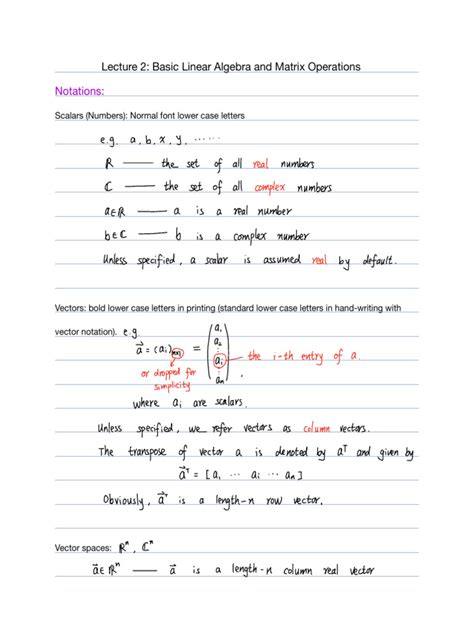 Lecture 2: Basic Linear Algebra and Matrix Operations
Notations:
Scalars (Numbers): Normal font lower case letters
e.g. a, b, x, y, ······
ℝ —— the set of all real numbers
ℂ —— the set of all complex numbers
a∈ℝ —— a is a real number
b∈ℂ —— b is a complex number
Unless specified, a scalar is assumed real by default.
Vectors: bold lower case letters in printing (standard lower case letters in hand-writing with
vector notation). e.g.
a⃗ = (aᵢ)ₙₓ₁ = (a₁ a₂ ⋮ aᵢ ⋮ aₙ) the i-th entry of a.
or dropped for
simplicity
where aᵢ are scalars.
Unless specified, we refer vectors as column vectors.
The transpose of vector a is denoted by aᵀ and given by
a⃗ᵀ = [a₁ ··· aᵢ ··· aₙ]
Obviously, a⃗ᵀ is a length-n row vector.
Vector spaces: ℝⁿ, ℂⁿ
a⃗∈ℝⁿ —— a⃗ is a length-n column real vector